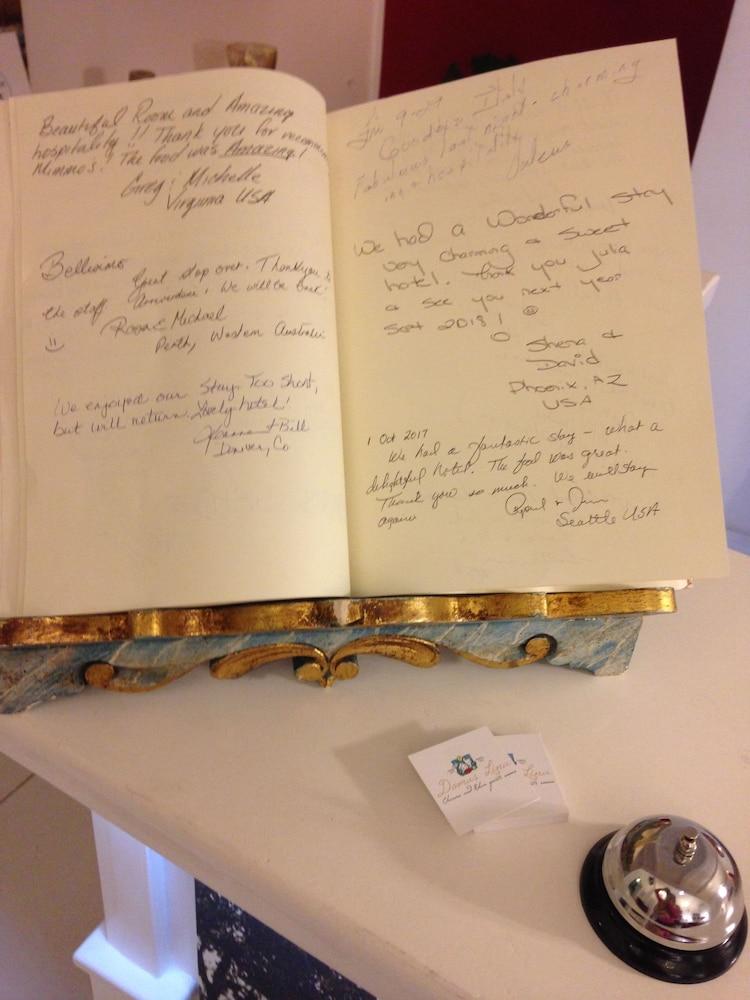 Beautiful Room and Amazing
hospitality!! Thank you for
Mimmos! The food was Amazing!
Greg & Michelle
Virginia USA
Bellisimo
Great stop over. Thankyou to
the staff. We will be back!
Michael
Perth, Western Australia
We enjoyed our stay. Too short,
but will return. Lovely hotel!
& Bill
Denver, Co
Fri 9-29
Fabulous last night - charming
inn & hospitality
We had a Wonderful Stay
very charming & sweet
hotel. Thank you Julia
& see you next year
Sept 2018!
Shena &
David
Phoenix, AZ
USA
1 Oct 2017
We had a fantastic stay - what a
delightful hotel. The food was great.
Thank you so much. We will stay
again
& Jim
Seattle USA
Domus Lina
Lina